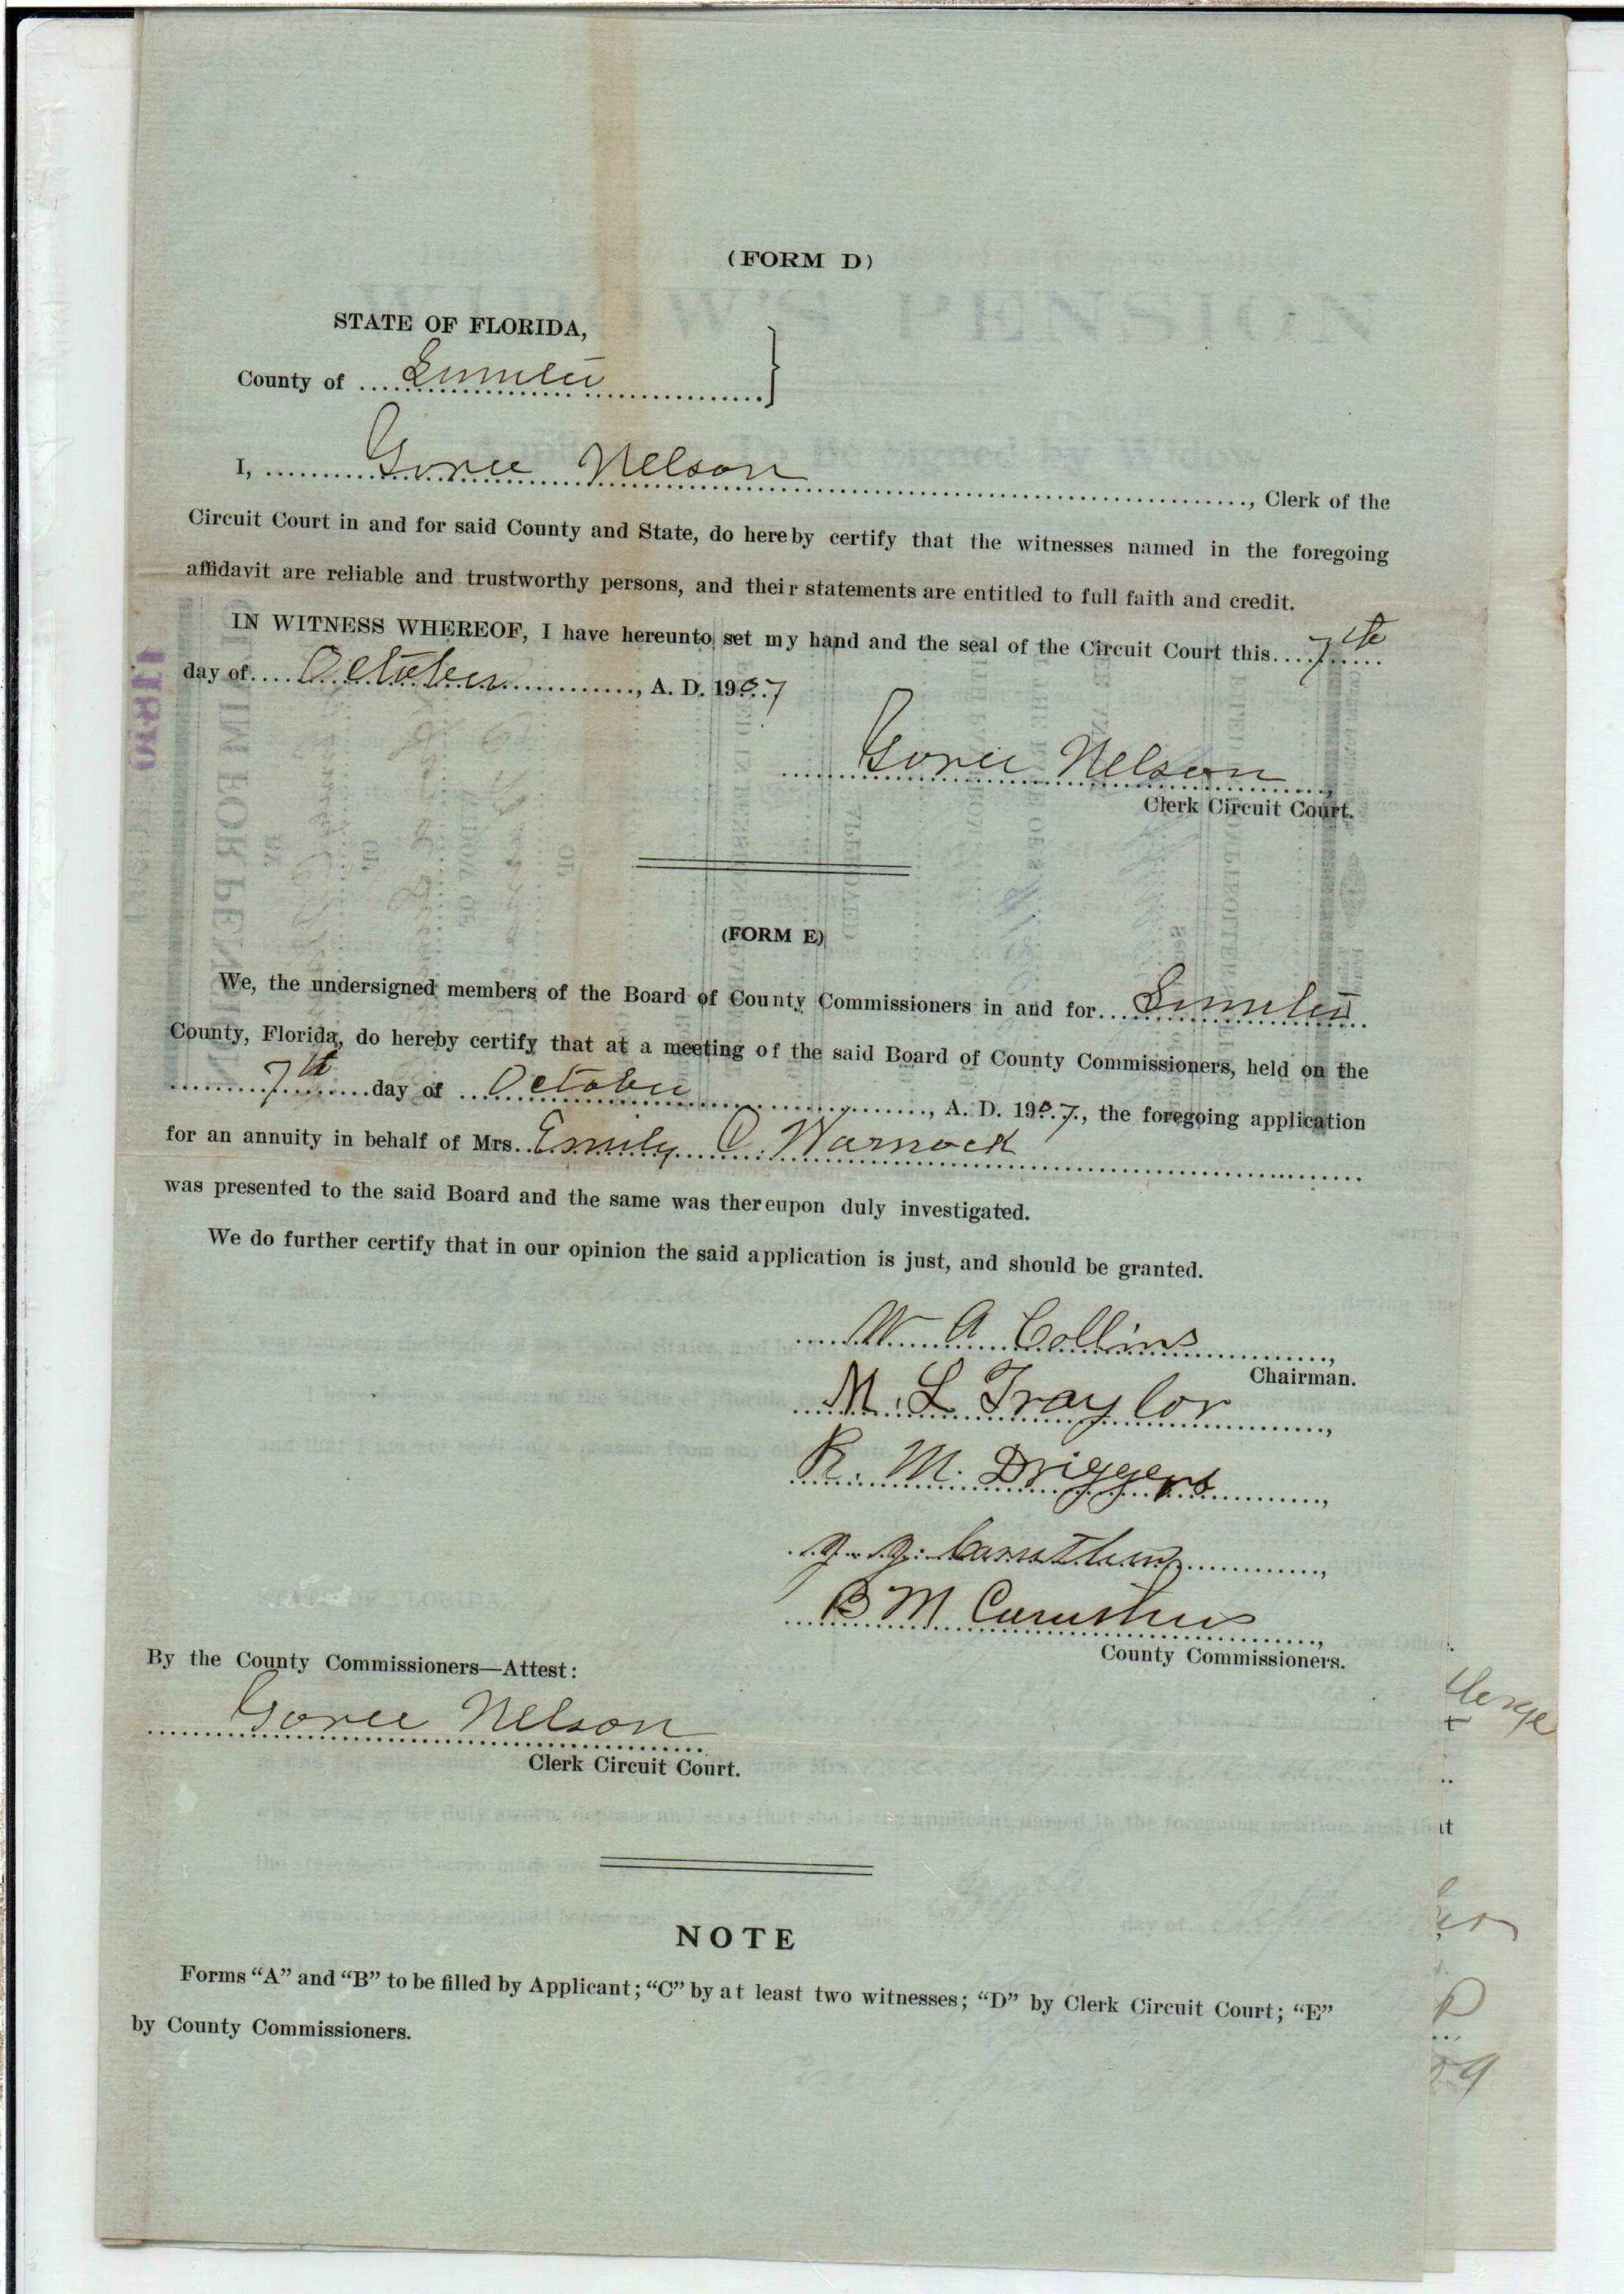 (FORM D)
STATE OF FLORIDA,
County of Sumter
I, Goree Nelson, Clerk of the
Circuit Court in and for said County and State, do hereby certify that the witnesses named in the foregoing
affidavit are reliable and trustworthy persons, and their statements are entitled to full faith and credit.
IN WITNESS WHEREOF, I have hereunto set my hand and the seal of the Circuit Court this 7th
day of October, A. D. 1907
Goree Nelson,
Clerk Circuit Court.
(FORM E)
We, the undersigned members of the Board of County Commissioners in and for Sumter
County, Florida, do hereby certify that at a meeting of the said Board of County Commissioners, held on the
7th day of October, A. D. 1907, the foregoing application
for an annuity in behalf of Mrs. Emily C. Warnock
was presented to the said Board and the same was thereupon duly investigated.
We do further certify that in our opinion the said application is just, and should be granted.
W A Collins,
Chairman.
M. L Traylor,
R. M. Driggers,
Caruthers,
B M Caruthers,
County Commissioners.
By the County Commissioners—Attest:
Goree Nelson
Clerk Circuit Court.
NOTE
Forms "A" and "B" to be filled by Applicant; "C" by at least two witnesses; "D" by Clerk Circuit Court; "E"
by County Commissioners.